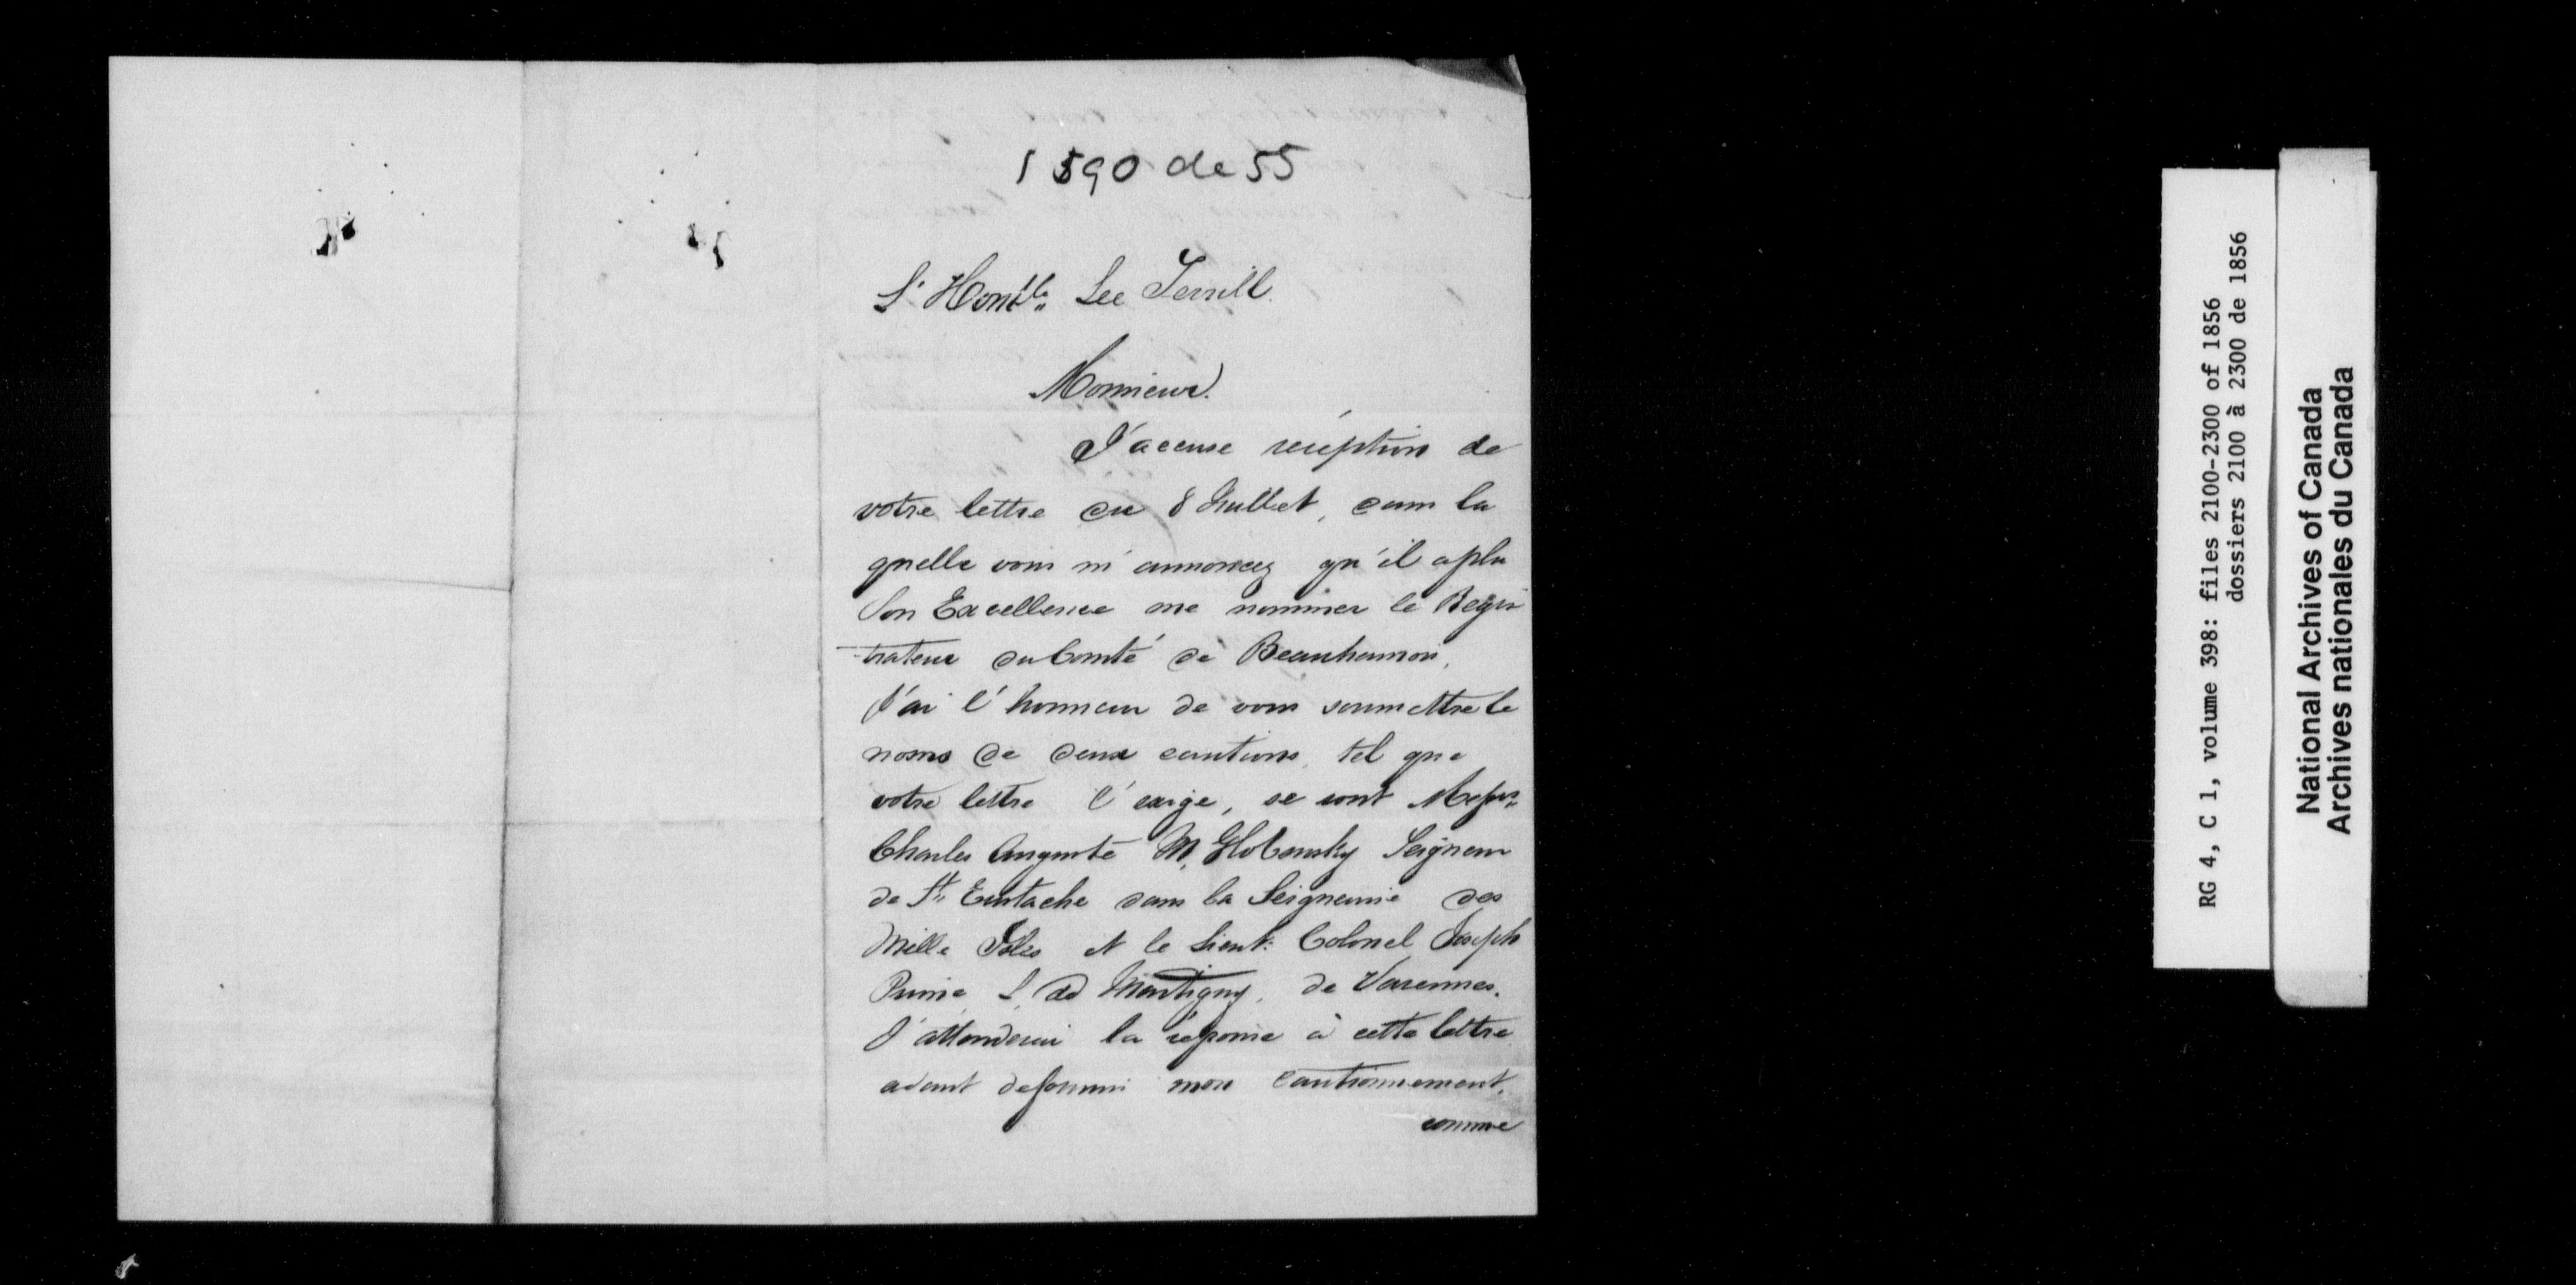 1590 de 55
L'Honble Lee Terrill.
Monsieur.
J'accuse réception de
votre lettre du 8 Juillet, dans la
quelle vous m'annoncez qu'il a plu
Son Excellence me nommer le Régis
-trateur du Comté de Beauharnois,
J'ai l'honneur de vous soumettre le
noms de deux cautions, tel que
votre lettre l'exige, se sont Messrs
Charles Auguste M. Globensky Seigneur
de St. Eustache dans la Seigneurie des
Mille Isles et le Lieut: Colonel Joseph
L. de Montigny, de Varennes.
J'attenderai la réponse à cette lettre
avant de fournir mon Cautionnement,
comme
RG 4, C 1, volume 398: files 2100-2300 of 1856
dossiers 2100 à 2300 de 1856
National Archives of Canada
Archives nationales du Canada